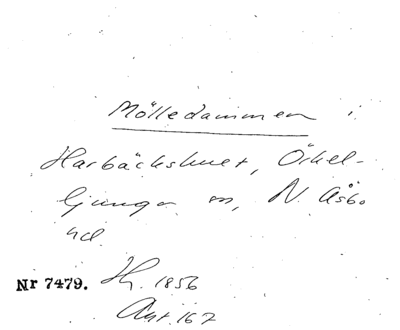 Mölledammen i
Harbäckshult, Örkel-
ljunga sn, N. Åsbo
hd.
Nr 7479. Hg. 1856
Ant. 167